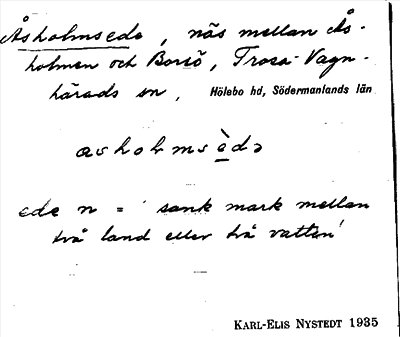 Åsholmsede, näs mellan Ås-
holmen och Borsö, Trosa-Vagn-
härads sn, Hölebo hd, Södermanlands län
asholmsèdə
ede n = 'sank mark mellan
två land eller två vatten'
KARL-ELIS NYSTEDT 1935